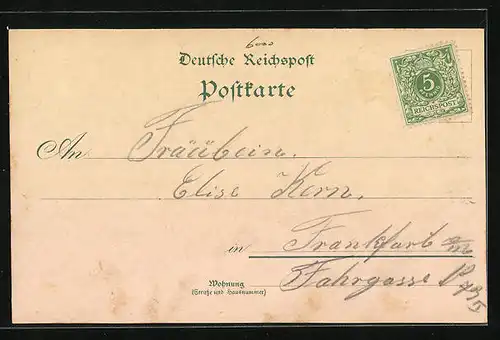 6000
Deutsche Reichspost
Postkarte
5
PFENNIG
REICHSPOST
An Fräulein.
Elise Kern.
in Frankfurt a/m
Wohnung
(Straße und Hausnummer)
Fahrgasse